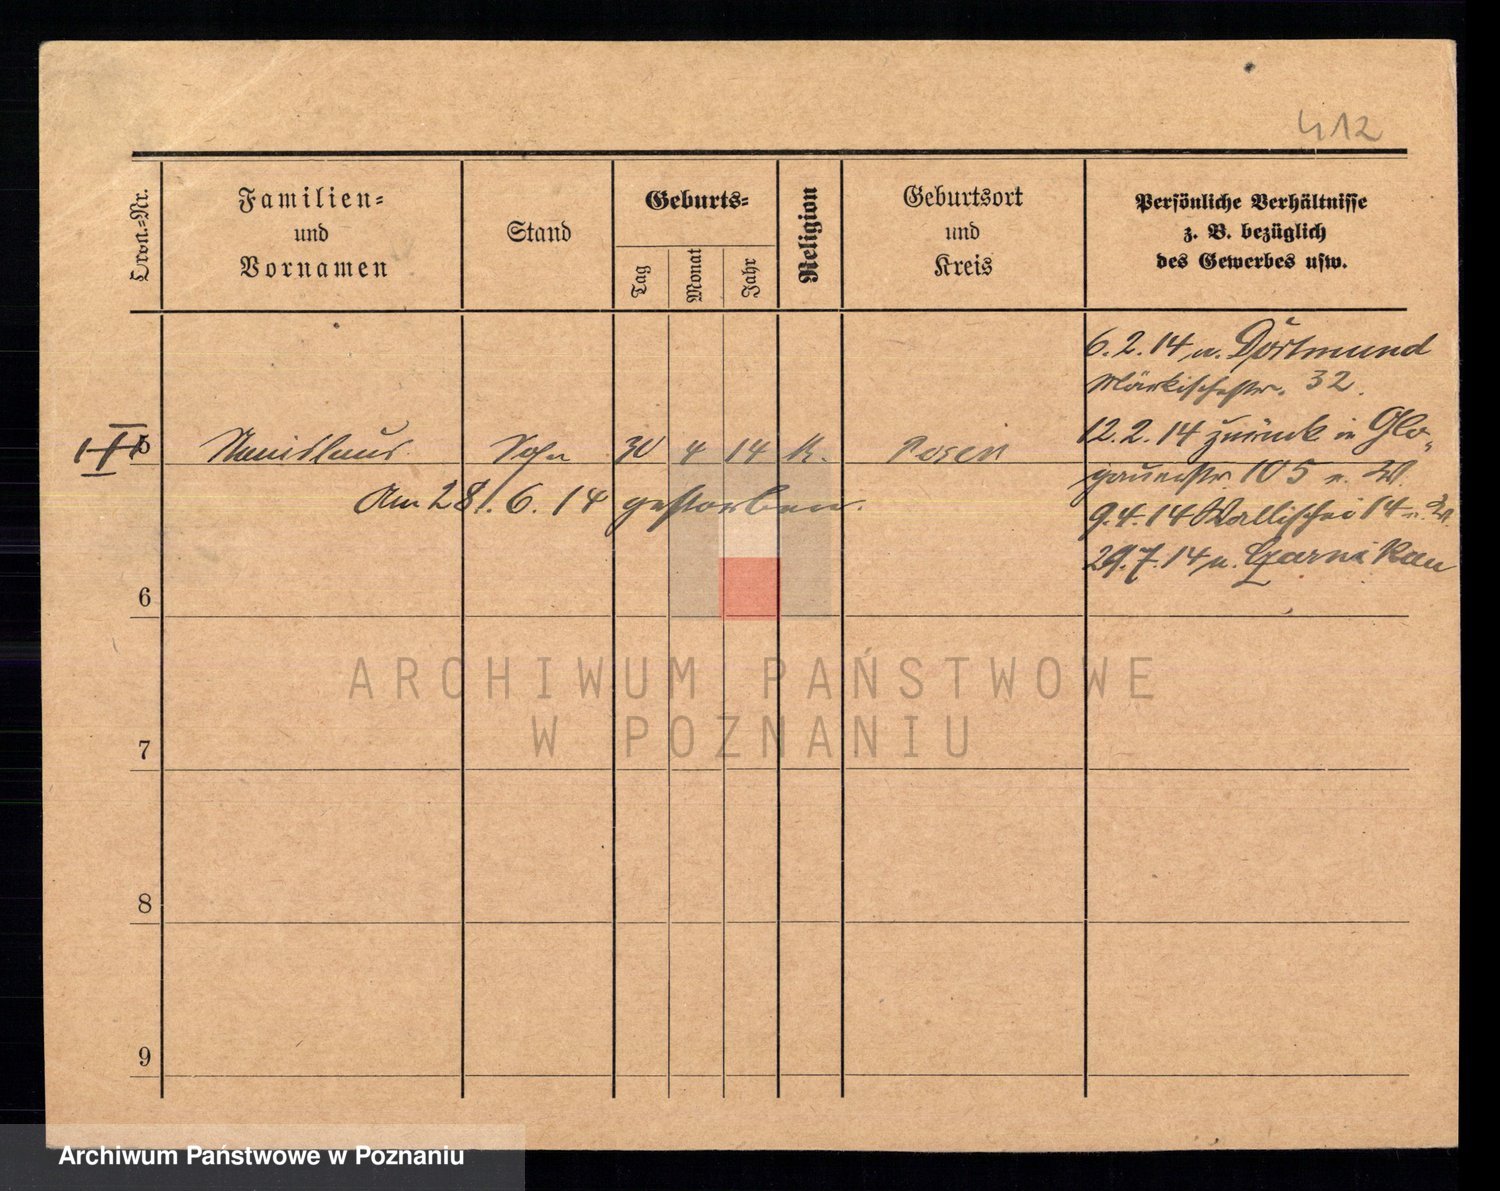 412
Ordn.-Nr.
Familien-
und
Vornamen
Stand
Geburts-
Tag
Monat
Jahr
Religion
Geburtsort
und
Kreis
Persönliche Verhältnisse
z. B. bezüglich
des Gewerbes usw.
6. 2. 14 n. Dortmund
Märkischestr. 32.
12. 2. 14 zurück in Glo-
gauerstr 105 v. W.
9. 4. 14 Wallischei 14
29. 7. 14 n. Czarnikau
5 Stanislaus Sohn 30 4 14 k. Posen
Am 28. 6. 14 gestorben.
6
7
8
9
ARCHIWUM PAŃSTWOWE
W POZNANIU
Archiwum Państwowe w Poznaniu